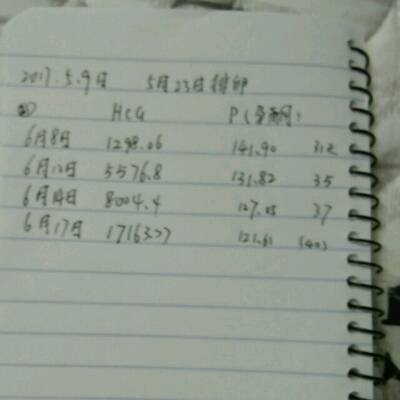 2017.5.9日 5月23日排卵
HCG P(孕酮)
6月8日 1298.06 141.90 31天
6月12日 5576.8 131.82 35
6月14日 8004.4 127.05 37
6月17日 17163.77 121.61 (40)